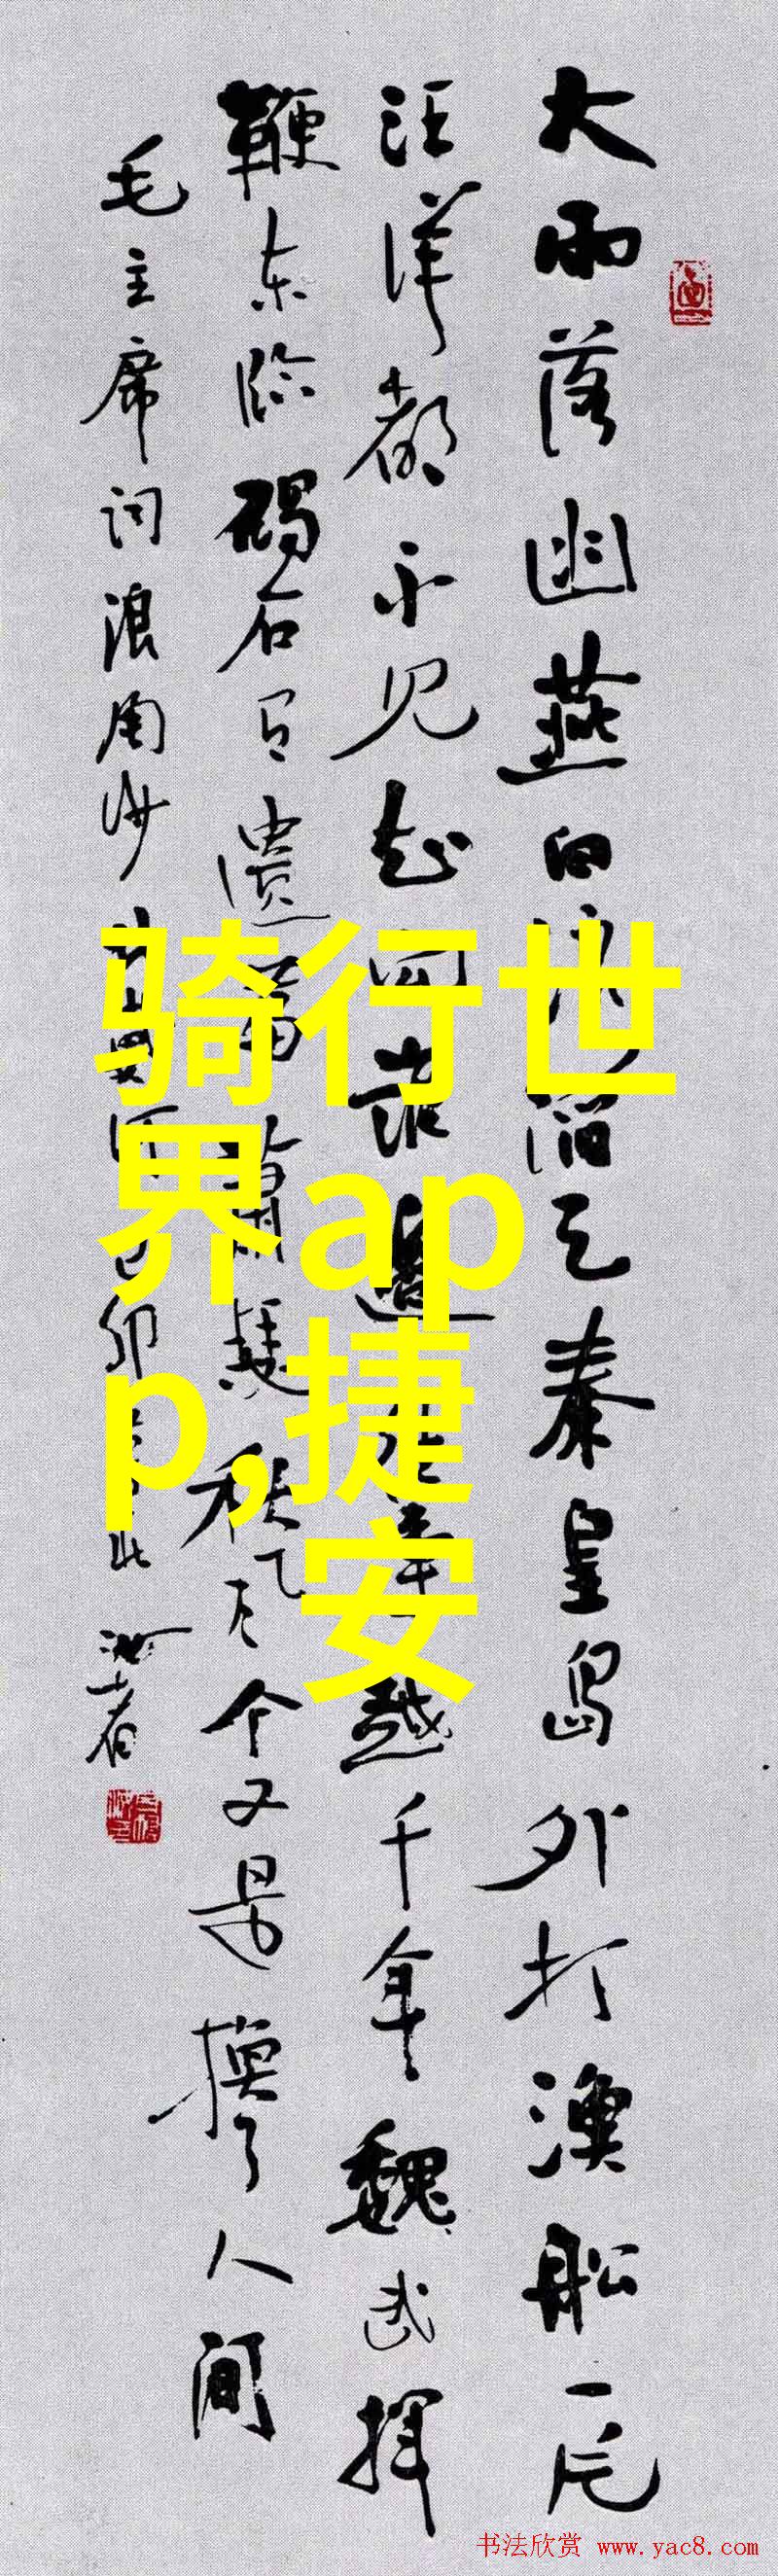 大雨落幽燕白浪滔天秦皇岛外打漁船一片
汪洋都不见知向谁邊往事越千年魏武挥
鞭东临碣石有遗篇萧瑟秋风今又是换了人间
毛主席词浪淘沙
骑行世
界ap
p,捷
安
书法欣赏 www.yac8.com